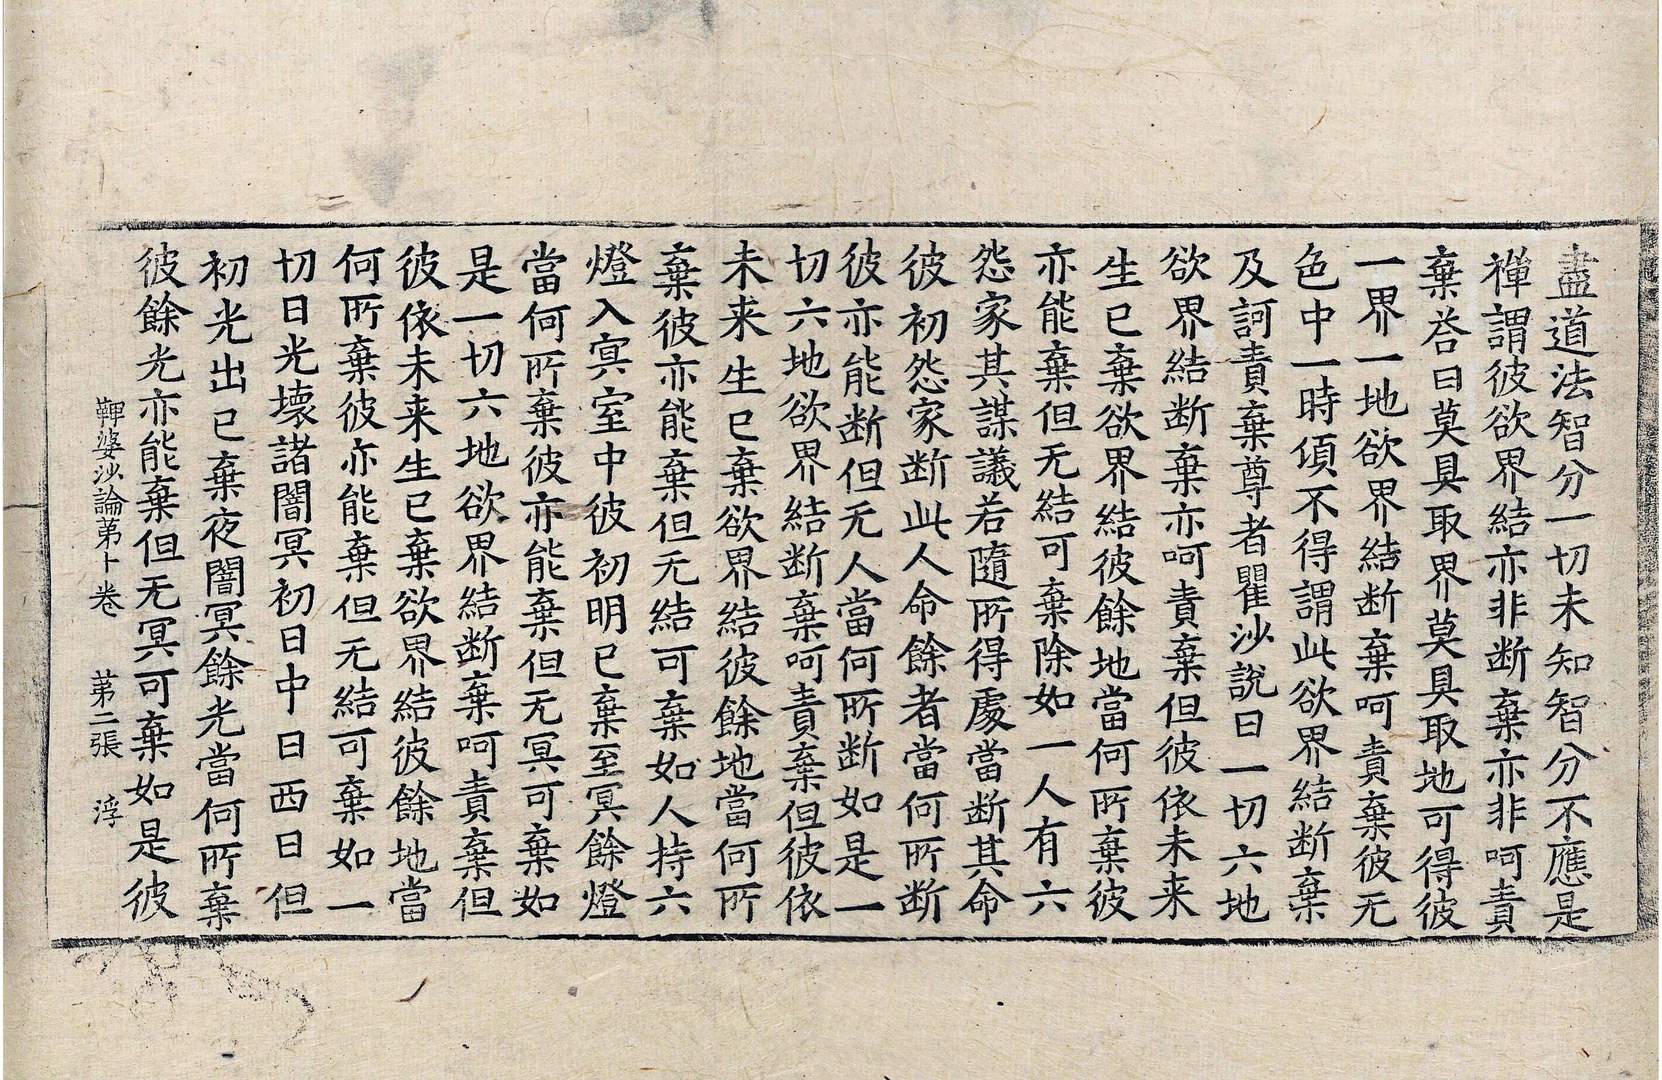 盡道法智分一切未知智分不應是
禪謂彼欲界結亦非断棄亦非呵責
棄荅曰莫具取界莫具取地可得彼
一界一地欲界結断棄呵責棄彼无
色中一時頃不得謂此欲界結断棄
及訶責棄尊者瞿沙說曰一切六地
欲界結断棄亦呵責棄但彼依未来
生已棄欲界結彼餘地當何所棄彼
亦能棄但无結可棄除如一人有六
怨家其謀議若隨所得處當断其命
彼初怨家断此人命餘者當何所断
彼亦能断但无人當何所断如是一
切六地欲界結断棄呵責棄但彼依
未来生已棄欲界結彼餘地當何所
棄彼亦能棄但无結可棄如人持六
燈入㝠室中彼初明已棄至㝠餘燈
當何所棄彼亦能棄但无㝠可棄如
是一切六地欲界結断棄呵責棄但
彼依未来生已棄欲界結彼餘地當
何所棄彼亦能棄但无結可棄如一
切日光壊諸闇㝠初日中日西日但
初光出已棄夜闇㝠餘光當何所棄
彼餘光亦能棄但无㝠可棄如是彼
鞞婆沙論第十卷　第二張　浮